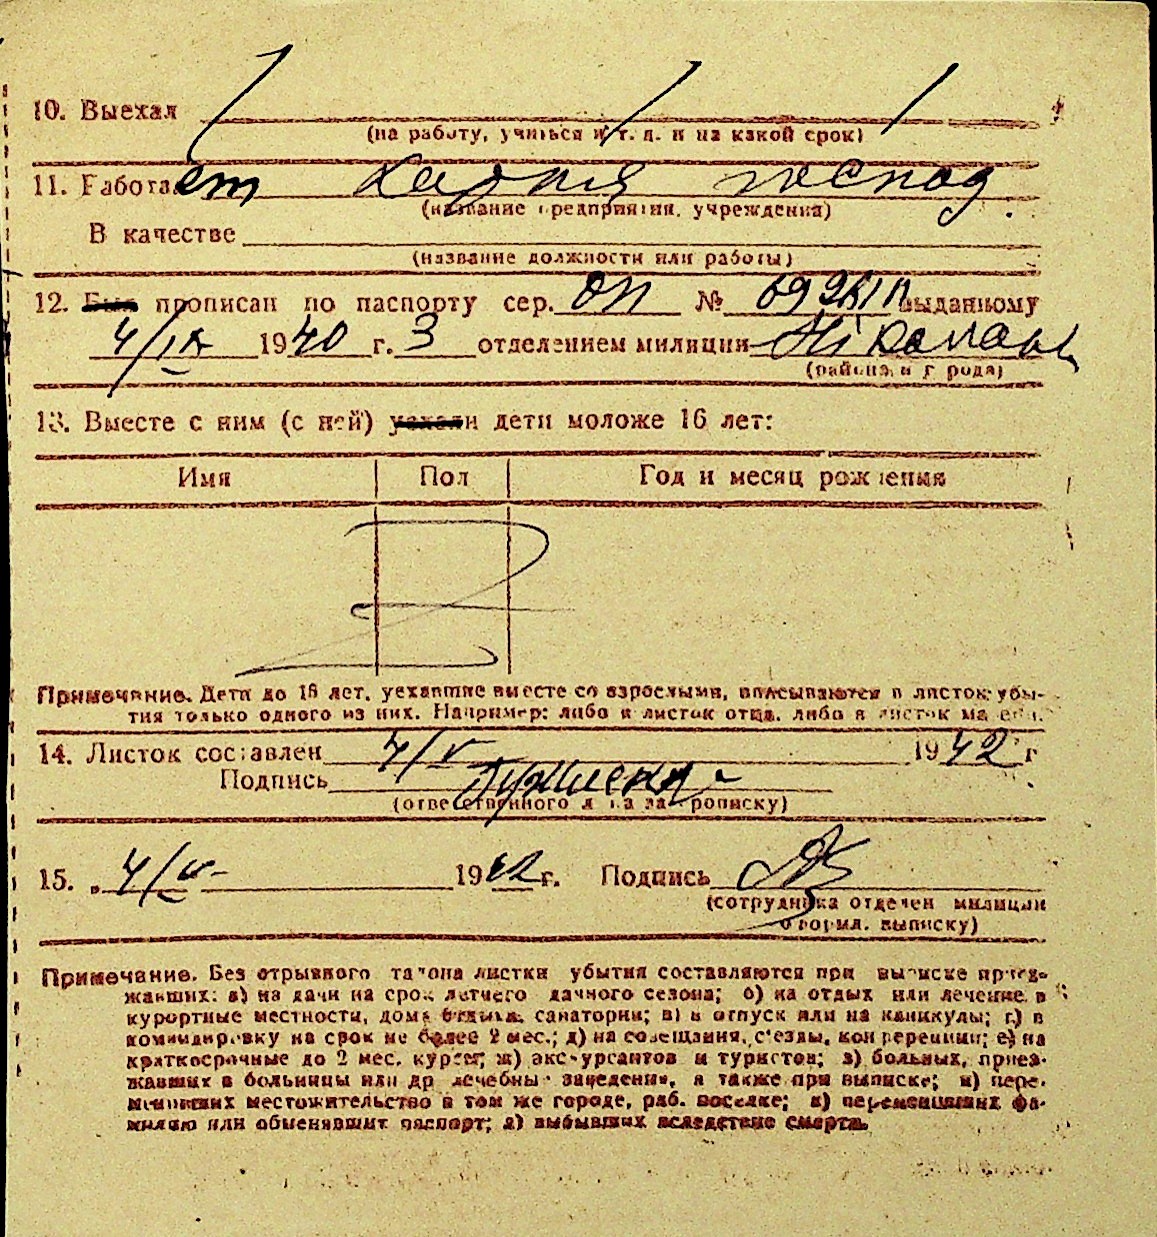 10. Выехал
(на работу, учиться и т. д. и на какой срок)
11. Работает
(название предприятия, учреждения)
В качестве
(название должности или работы)
12. Был прописан по паспорту сер. ОП № выданному
4/IX 1940 г. 3 отделением милиции
(района и города)
13. Вместе с ним (с ней) уехали дети моложе 16 лет:
Имя Пол Год и месяц рождения
Примечание. Дети до 16 лет, уехавшие вместе со взрослыми, вписываются в листок убы-
тия только одного из них. Например: либо в листок отца, либо в листок матери.
14. Листок составлен 4/V 1942 г
Подпись
(ответственного лица за прописку)
15. „ 4/V 1942 г. Подпись
(сотрудника отделен милиции
оформл. выписку)
Примечание. Без отрывного талона листки убытия составляются при выписке приез-
жавших: а) на дачи на срок летнего дачного сезона; б) на отдых или лечение в
курортные местности, дома отдыха, санатории; в) в отпуск или на каникулы; г) в
командировку на срок не более 2 мес.; д) на совещания, с'езды, конференции; е) на
краткосрочные до 2 мес. курсы; ж) экскурсантов и туристов; з) больных, приез-
жавших в больницы или др лечебны заведения, а также при выписке; и) пере-
менивших местожительство в том же городе, раб. поселке; к) переменивших фа-
милию или обменявших паспорт; л) выбывших вследствие смерти.